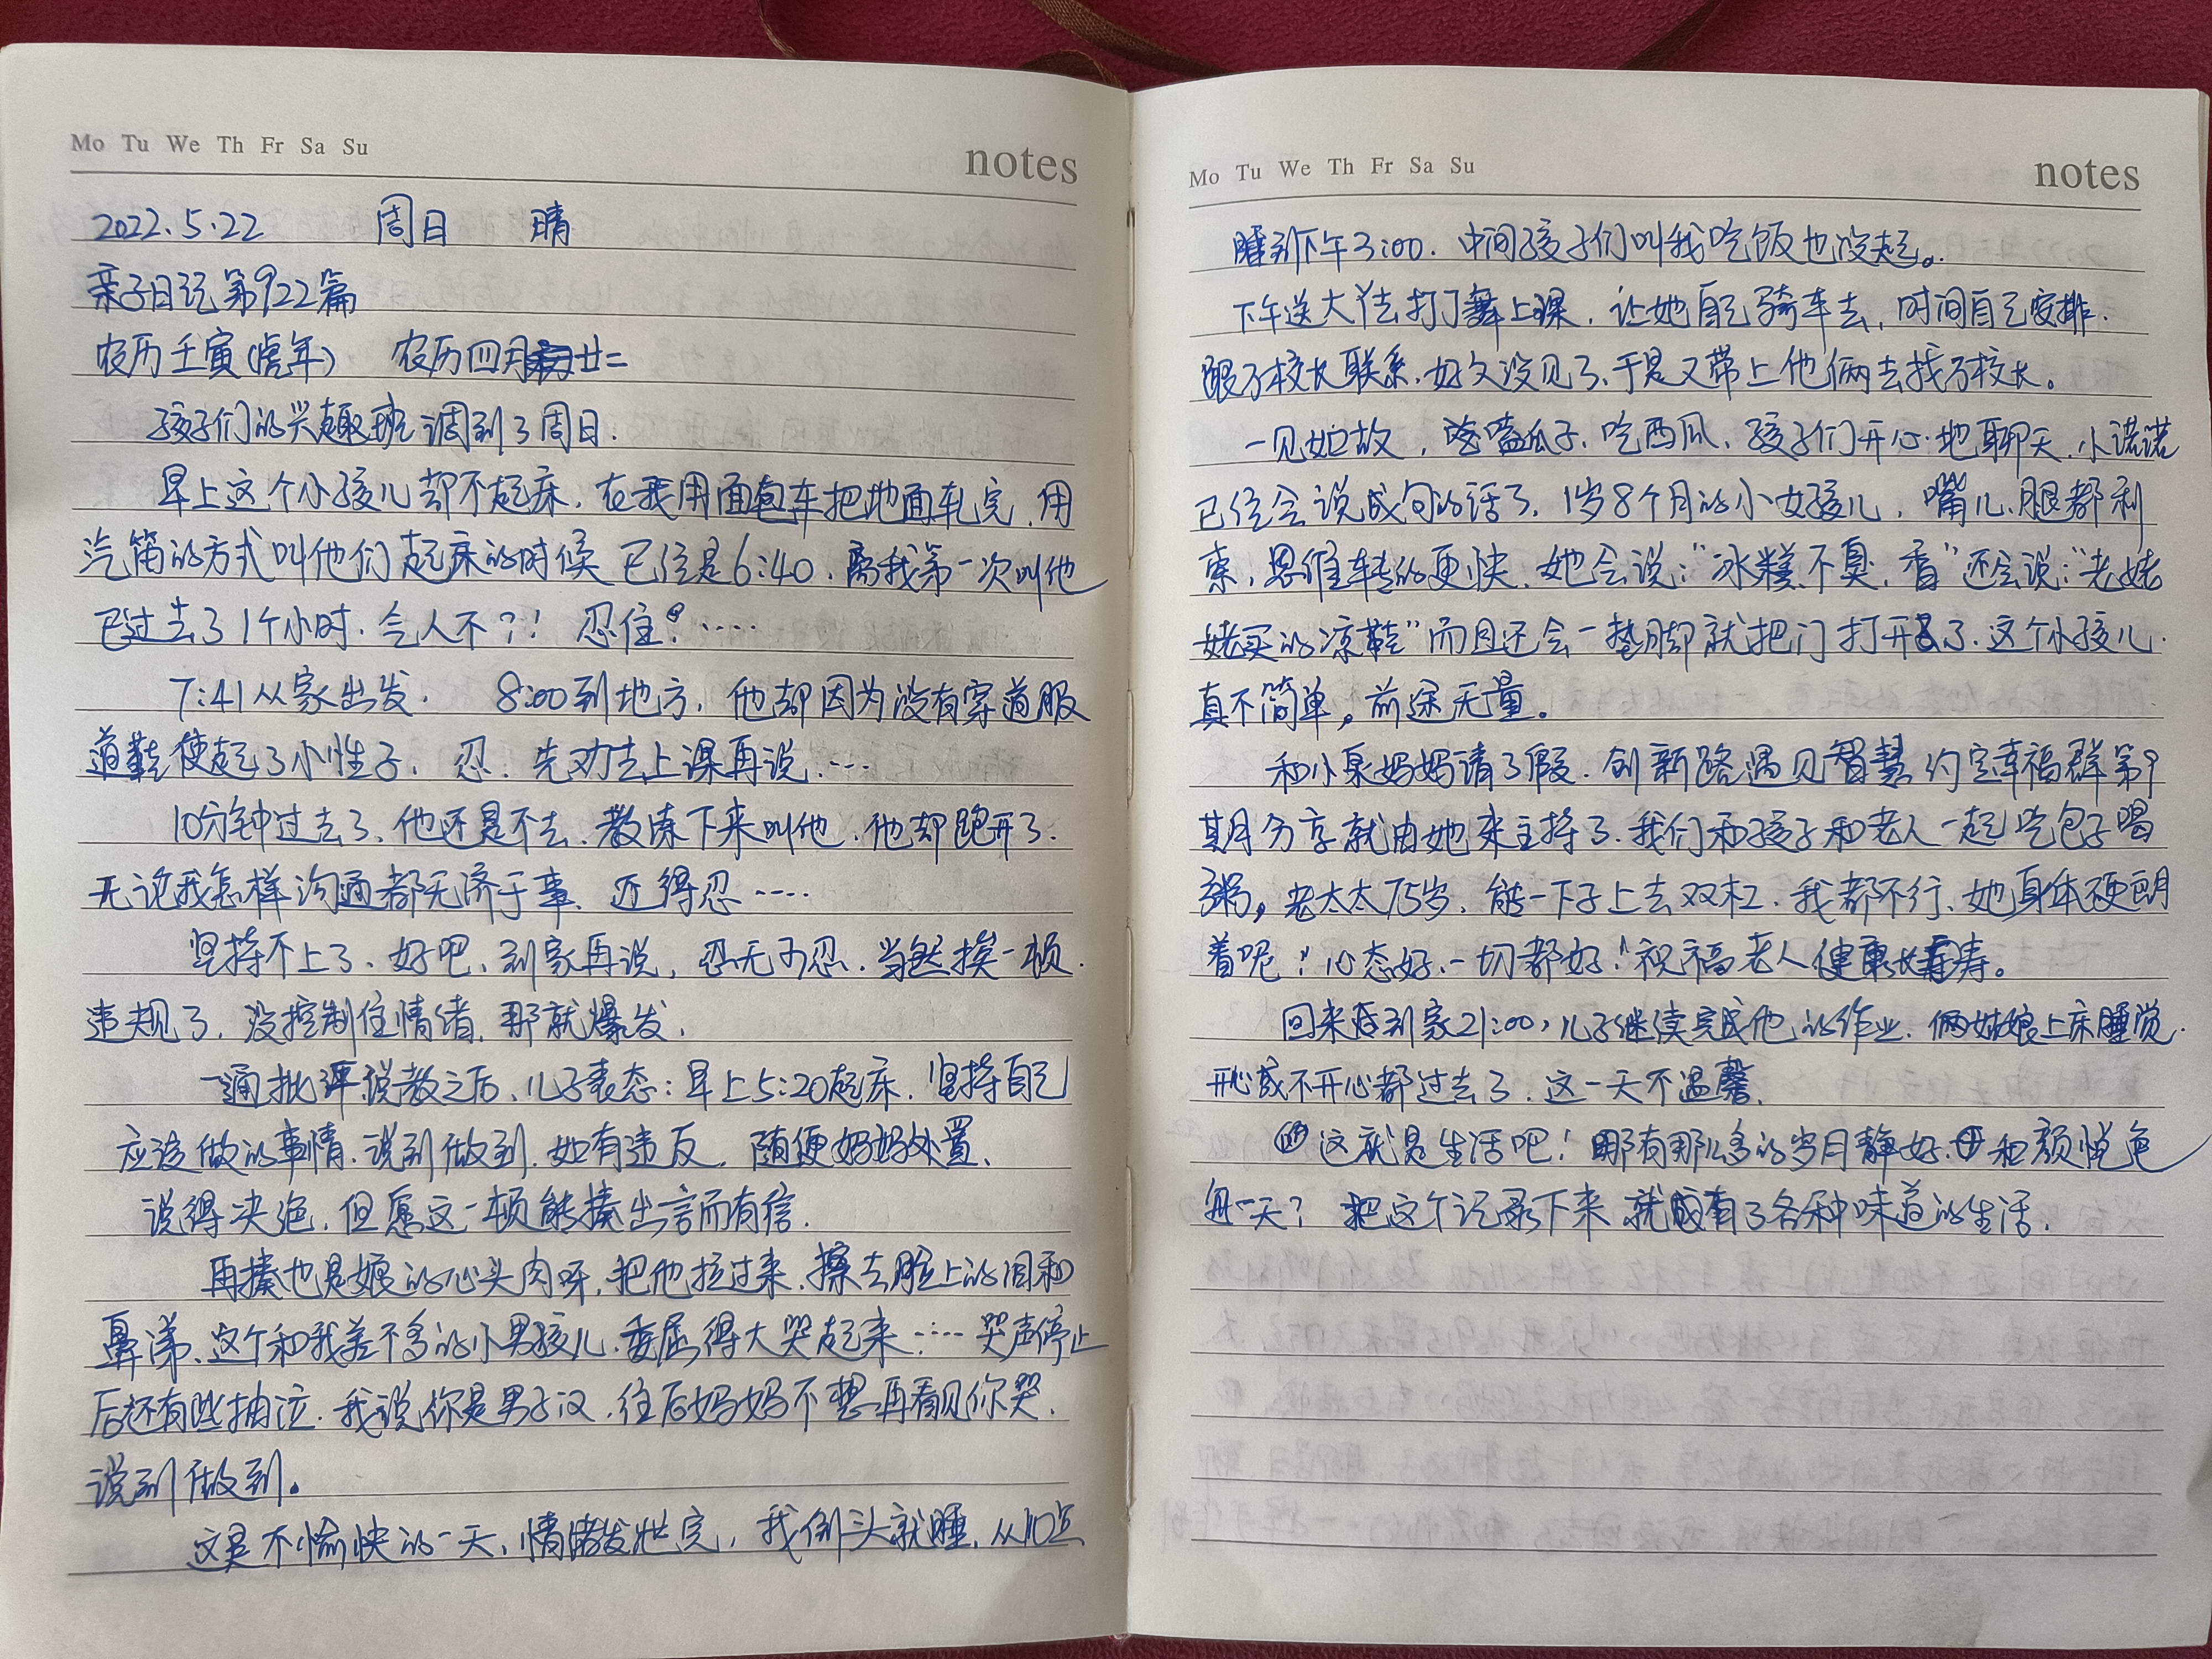 Mo Tu We Th Fr Sa Su
notes
2022.5.22 周日 晴
亲子日记第922篇
农历壬寅(虎年) 农历四月廿二
孩子们的兴趣班调到了周日.
早上这个小孩儿却不起床,在我用面包车把地面轧完,用
汽笛的方式叫他们起床的时候已经是6:40,离我第一次叫他
已过去了1个小时.令人不?! 忍住!……
7:41从家出发. 8:00到地方,他却因为没有穿道服
道鞋使起了小性子,忍.先劝去上课再说.…
10分钟过去了,他还是不去,教练下来叫他,他却跑开了.
无论我怎样沟通都无济于事,还得忍……
坚持不上了、好吧、到家再说,忍无可忍.当然挨一顿.
违规了,没控制住情绪,那就爆发.
一通批评说教之后、儿子表态:早上5:20起床.坚持自己
应该做的事情.说到做到.如有违反,随便妈妈处置、
说得决绝,但愿这一顿能揍出言而有信.
再揍也是娘的心头肉呀,把他拉过来,擦去脸上的泪和
鼻涕、这个和我差不多的小男孩儿.委屈得大哭起来……哭声停止
后还有些抽泣.我说你是男子汉,往后妈妈不想再看见你哭.
说到做到。
这是不愉快的一天,情绪发泄完,我倒头就睡,从10点
Mo Tu We Th Fr Sa Su
notes
睡到下午3:00.中间孩子们叫我吃饭也没起。
下午送大丫去打了舞上课,让她自己骑车去,时间自己安排.
跟了校长联系,好久没见了、于是又带上他俩去找了校长。
一见如故,嗑瓜子、吃西瓜、孩子们开心地聊天.小诺诺
已经会说成句的话了,1岁8个月的小女孩儿,嘴儿、腿都利
索,思维转的更快.她会说:“冰糕不臭,香”还会说:“老姥
姥买的凉鞋”而且还会一垫脚就把门打开了.这个小孩儿
真不简单,前途无量。
和小泉妈妈请了假.创新路遇见智慧约定幸福群第9
期分享就由她来主持了.我们和孩子和老人一起吃包子喝
粥,老太太75岁,能一下子上去双杠.我都不行、她身体硬朗
着呢!心态好、一切都好!祝福老人健康长寿。
回来到家21:00,儿子继续完成他的作业.俩姑娘上床睡觉.
开心或不开心都过去了.这一天不温馨.
这就是生活吧!哪有那么多的岁月静好、和颜悦色
每一天?把这个记录下来就有了各种味道的生活.